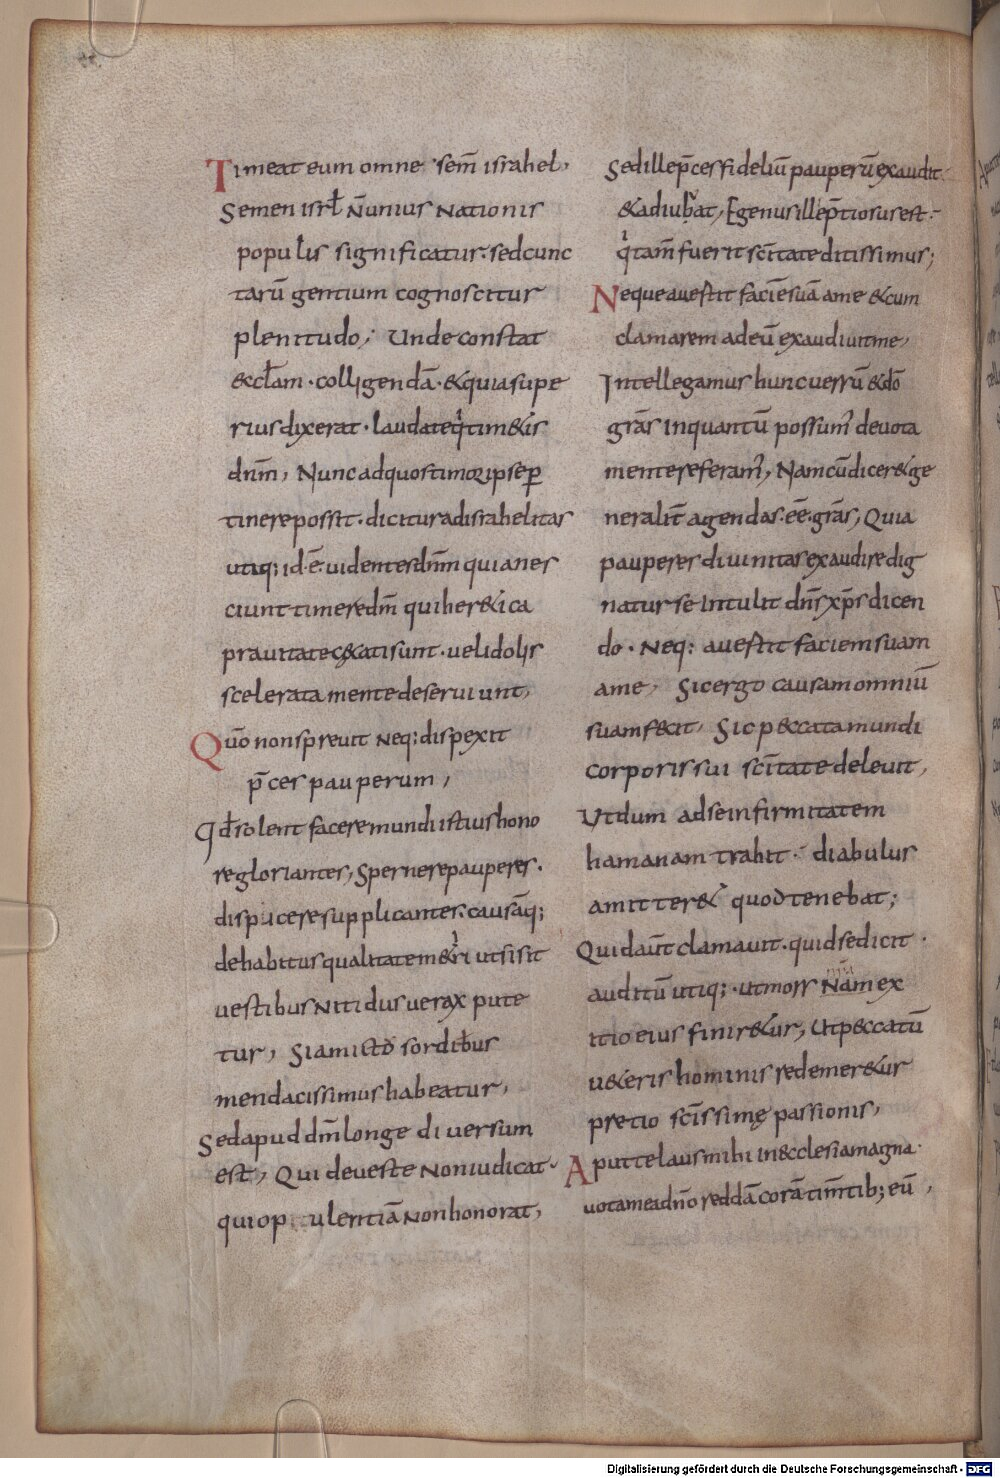 Timeat eum omne sem̅ israhel,
Semen isrl̅ N̅unius Nationis
populis significatur. sed cunc
tarū gentium cognoscitur
plenitudo; Unde constat
&ccl̅am · colligendā · & quia supe
rius dixerat · laudate qͥ tim&is
dn̅m, Nunc ad quos timor ipse ꝑ
tinere possit · dicitur ad israhelitas
utiq; id · ē uidentes dn̅m qui anes
ciunt timere dm̅ qui her&ica
prauitate c&cati sunt · uel idolis
scelerata mente deseruiunt,
Quō non spreuit Neq; dispexit
p̅ces pauperum,
Qd̅ solent facere mundi istius hono
re gloriantes, Spernere pauperes ·
displicere supplicantes. causāq;
de habitus qualitate m&iri ut si sit
uestibus Nitidus uerax pute
tur, Si amictō sordibus
mendacissimus habeatur,
Sed apud dm̅ longe diuersum
est, Qui de ueste Non iudicat ·
qui opulentiā Non honorat,
Sed ille p̅ces fideliū pauperū exaudit
& adiubat, Egenus ille p̅tiosus est ·
qͥ tam̅ fuerit sc̅itate ditissimus;
Neque auertit faciē suā a me & cum
clamarem ad eū exaudiuit me,
Intellegamus hunc uersū & dō
grās inquantū possum᾿ deuota
mente referam᾿, Nam cū dicer& ge
neralit̅ agendas · eē · grās, Quia
pauperes diuinitas exaudire dig
natur se intulit dn̅s xp̅s dicen
do · Neq; auertit faciem suam
a me, Sic ergo causam omniū
suam fecit, Sic p&ccata mundi
corporis sui sc̅itate deleuit,
Ut dum ad se infirmitatem
hamanam trahit · diabulus
amitter& quod tenebat;
Quid aut̅ clamauit · quid se dicit ·
auditū utiq; · ut mors Nam ex
nr̅a
itio eius finir&ur, Ut p&ccatū
u&eris hominis redemer&ur
pretio sc̅issimę passionis,
Aput te laus mihi in &cclesia magna ·
uota mea dn̅o reddā corā tim̅tib; eū,
Digitalisierung gefördert durch die Deutsche Forschungsgemeinschaft - DFG